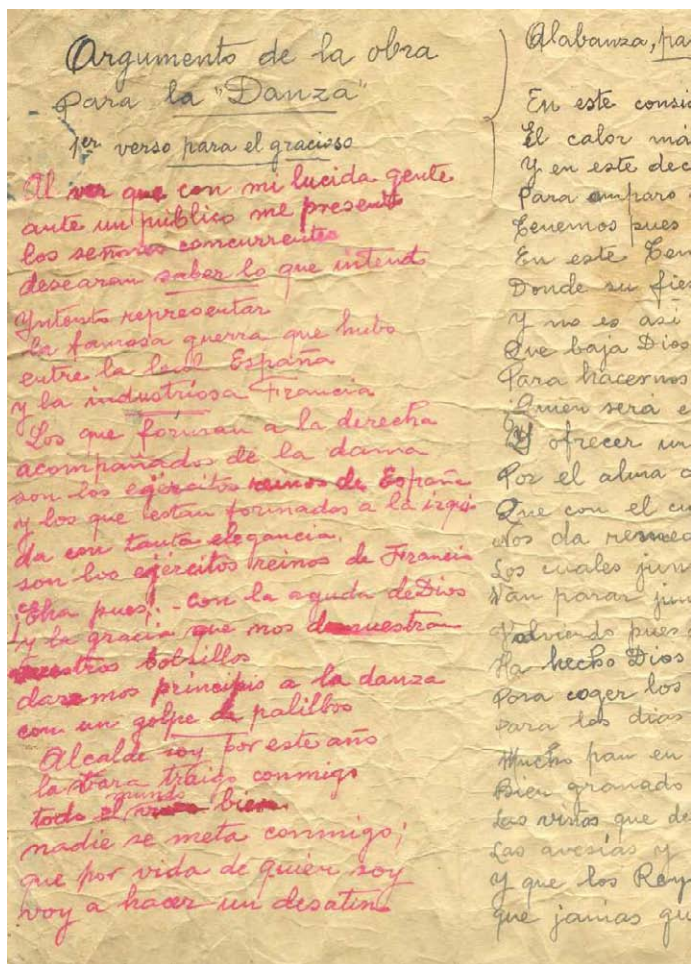 Argumento de la obra
Para la "Danza"
1er verso para el gracioso
Al ver que con mi lucida gente
ante un público me presento
los señores concurrentes
desearan saber lo que intento
Yntento representar
la famosa guerra que hubo
entre la leal España
y la industriosa Francia
Los que forman a la derecha
acompañados de la dama
son los ejércitos reinos de España
y los que estan formados a la izqui
da con tanta elegancia.
son los ejércitos reinos de Francia
¡Eha pues; - con la aguda de Dios
y la gracia que nos demuestran
nuestros bolsillos
daremos principio a la danza
con un golpe de palillos
Alcalde soy por este año
la vara traigo conmigo
todo el mundo bien
nadie se meta conmigo;
que por vida de quien soy
voy a hacer un desatino
Alabanza, pa
En este consi
El calor má
Y en este dec
Para amparo
Tenemos pues
En este Tem
Donde su fies
Y no es asi
Que baja Dios
Para hacernos
Quien será e
Y ofrecer un
Por el alma
Que con el cu
Nos da remed
Los cuales jun
Van parar jun
Volviendo pues
Ha hecho Dios
Para coger los
Para los dias
Mucho pan en
Bien granado
Las viñas que de
Las avesías y
Y que los Rey
que jamas qu